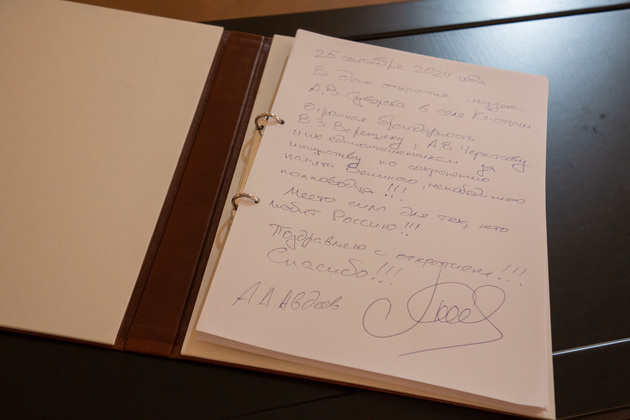 25 сентября 2021 года
В день открытия музея
А.В. Суворова в селе Кистыш
Огромная благодарность
В.З. Веренцеву, А.В. Черепсову
и их единомышленникам за
инициативу по сохранению
памяти Великого, непобедимого
полководца!!!
Место силы для тех, кто
любит Россию!!
Поздравляю с открытием!!!
Спасибо!!!
А А Авдеев